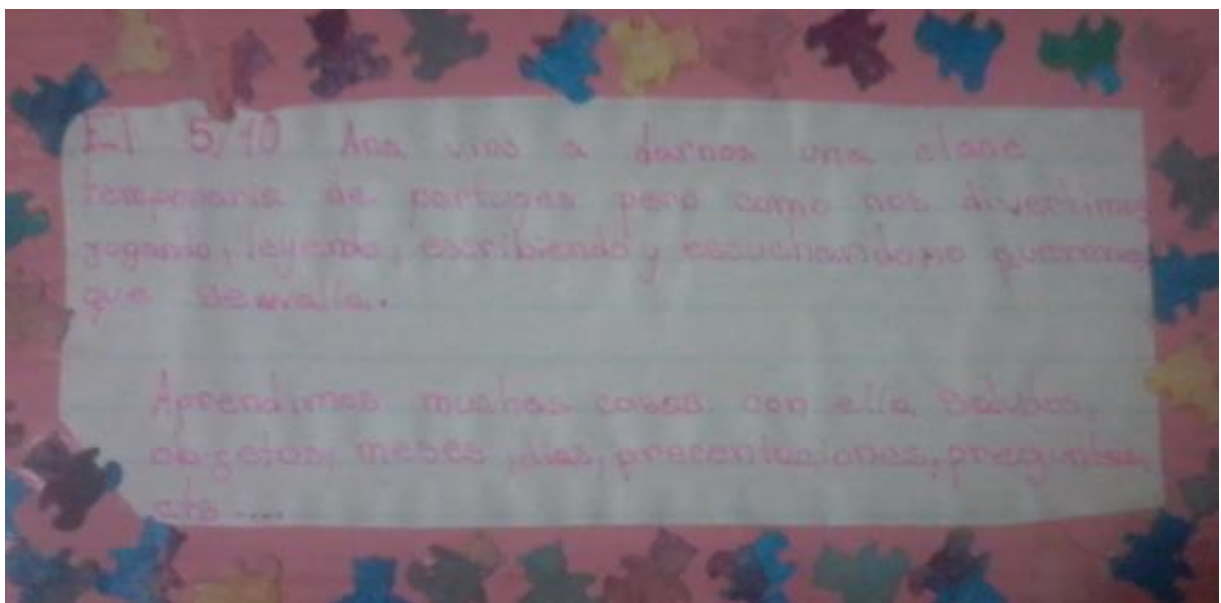 El 5/10 Ana vino a darnos una clase
temporaria de portugues pero como nos divertimos
jogando, leyendo, escribiendo y escuchando no queremos
que se valla.
Aprendimos muchas cosas con ella Saludos,
objetos, meses, dias, precentaciones, preguntas,
etc ....